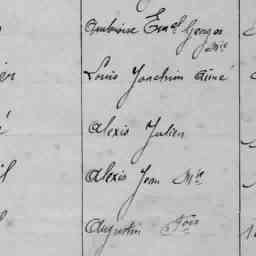 Ambroise Ernest Georges
Mie
Louis Joachim Aimé
Alexis Julien
Alexis Jean Mie
Augustin Fois